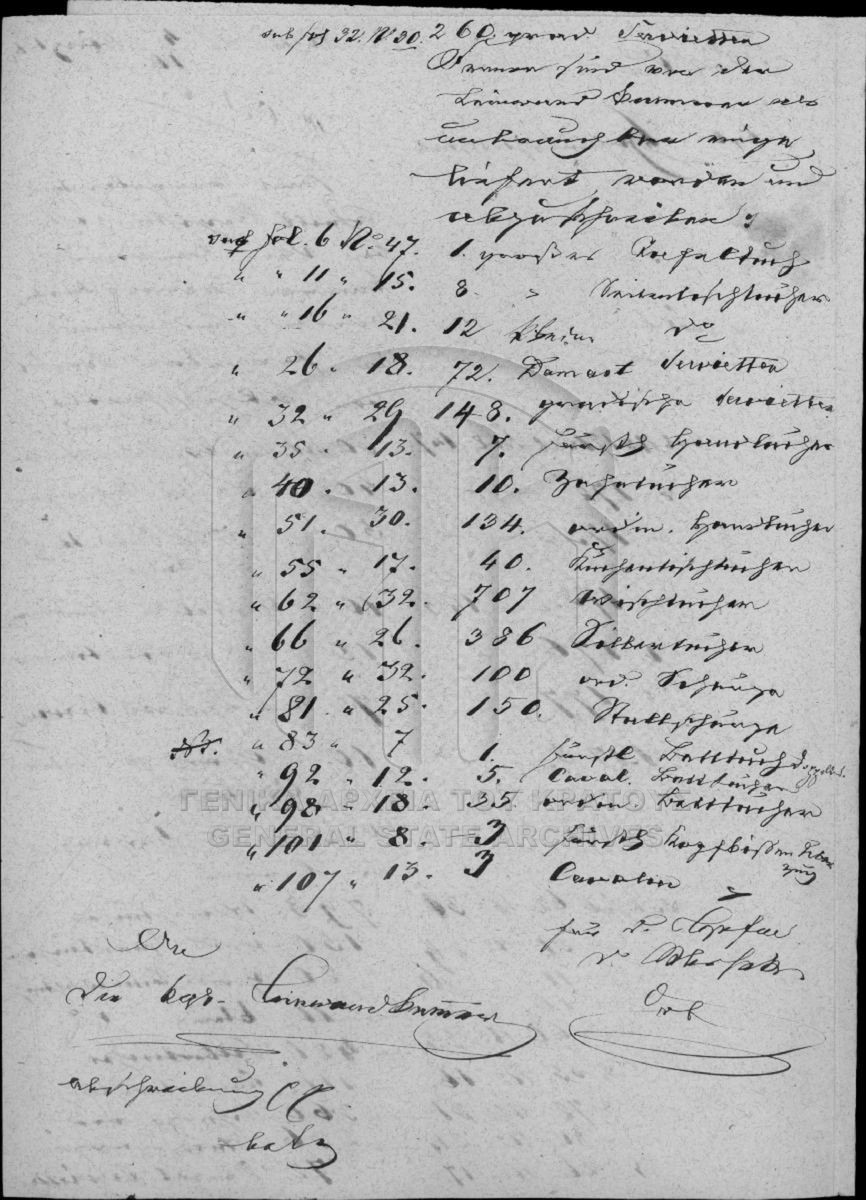 sub fol 32. No 30. 260. grad. Servietten
Ferner sind von der
Leinwand Kammer als
unbrauchbar einge
liefert worden und
abzuschreiben:
sub fol. 6 No. 47. 1. großes Tafeltuch
" " 11 " 15. 8. " Seitentischtücher
" " 16 " 21. 12 kleine do
" 26 " 18. 72. Damast Servietten
" 32 " 29 148. Servietten
" 35 " 13. 7. fürstl Handtücher
" 40 " 13. 10. Zahntücher
" 51. " 30. 134. ordin. Handtücher
" 55 " 17. 40. Küchentischtücher
" 62 " 32. 707 Wischtücher
" 66 " 26. 386 Silbertücher
" 72 " 32. 100 ord. Schürze
" 81 " 25. 150. Stallschürze
" 83 " 7 1. fürstl Betttuch
" 92 " 12. 5. Caval. Betttücher
" 98 " 18. 35 ordin. Betttücher
" 101 " 8. 3 fürstl Kopfkißen
" 107 " 13. 3 Cavalier "
ΓΕΝΙΚΑ ΑΡΧΕΙΑ ΤΟΥ ΚΡΑΤΟΥΣ
GENERAL STATE ARCHIVES
An
die kgl. Leinwandkammer
Abschreibung